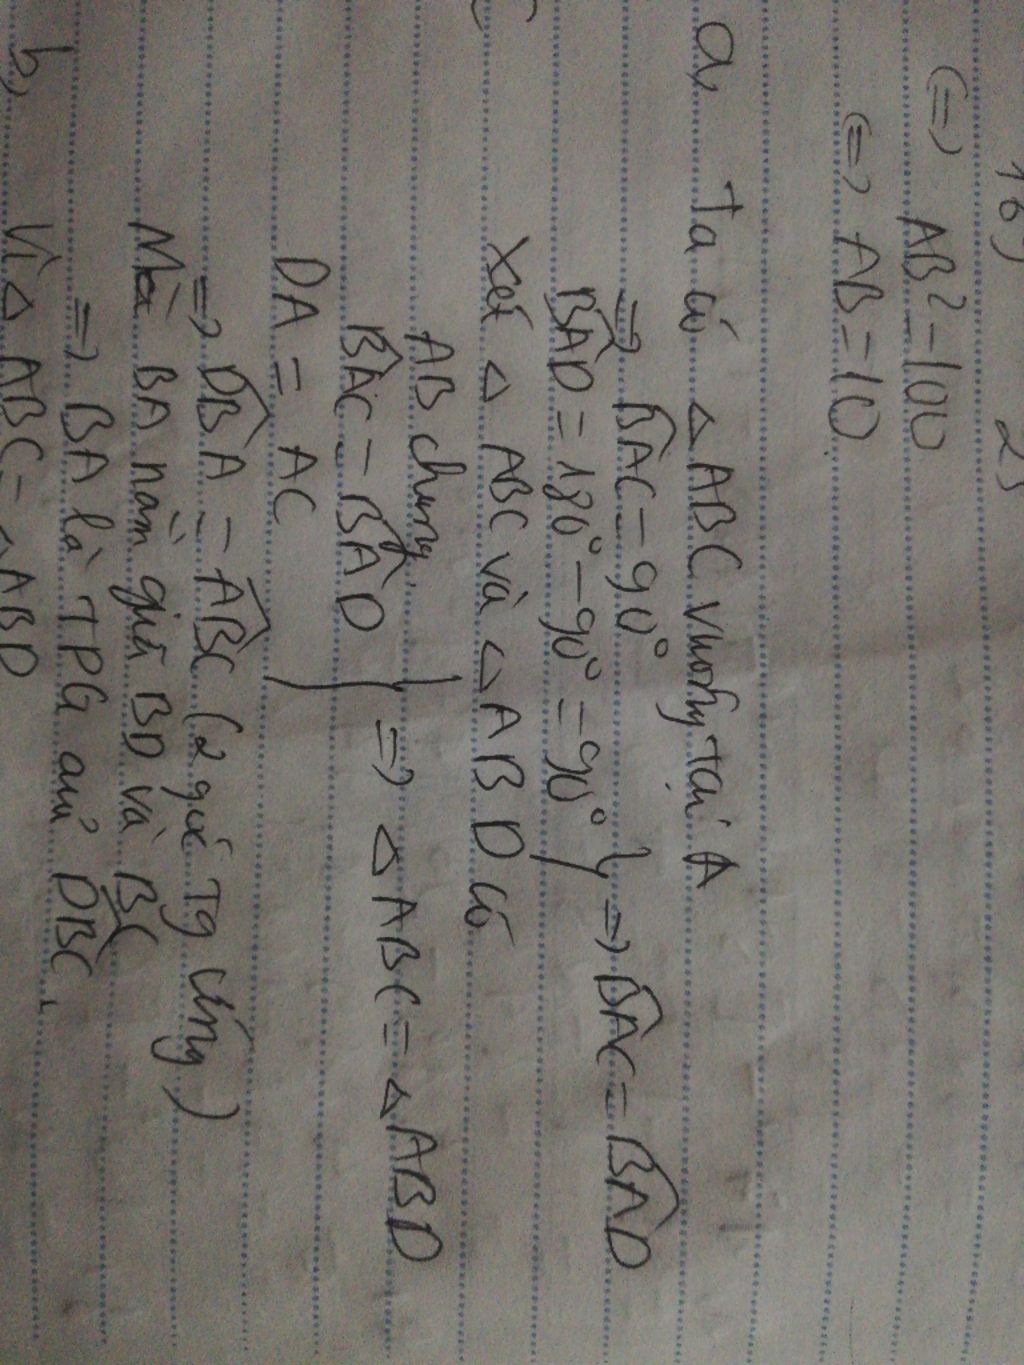 (=) AB² = 100
(=) AB = 10
a, Ta có △ ABC vuông tại A
=) B̂AC = 90°
B̂AD = 180° - 90° = 90° } =) B̂AC = B̂AD
Xét △ ABC và △ ABD có
AB chung
B̂AC = B̂AD } =) △ ABC = △ ABD
DA = AC
=) D̂BA = ÂBC (2 góc Tg ứng)
Mà BA nằm giữa BD và BC
=) BA là TPG của D̂BC
b, Vì △ ABC = △ ABD